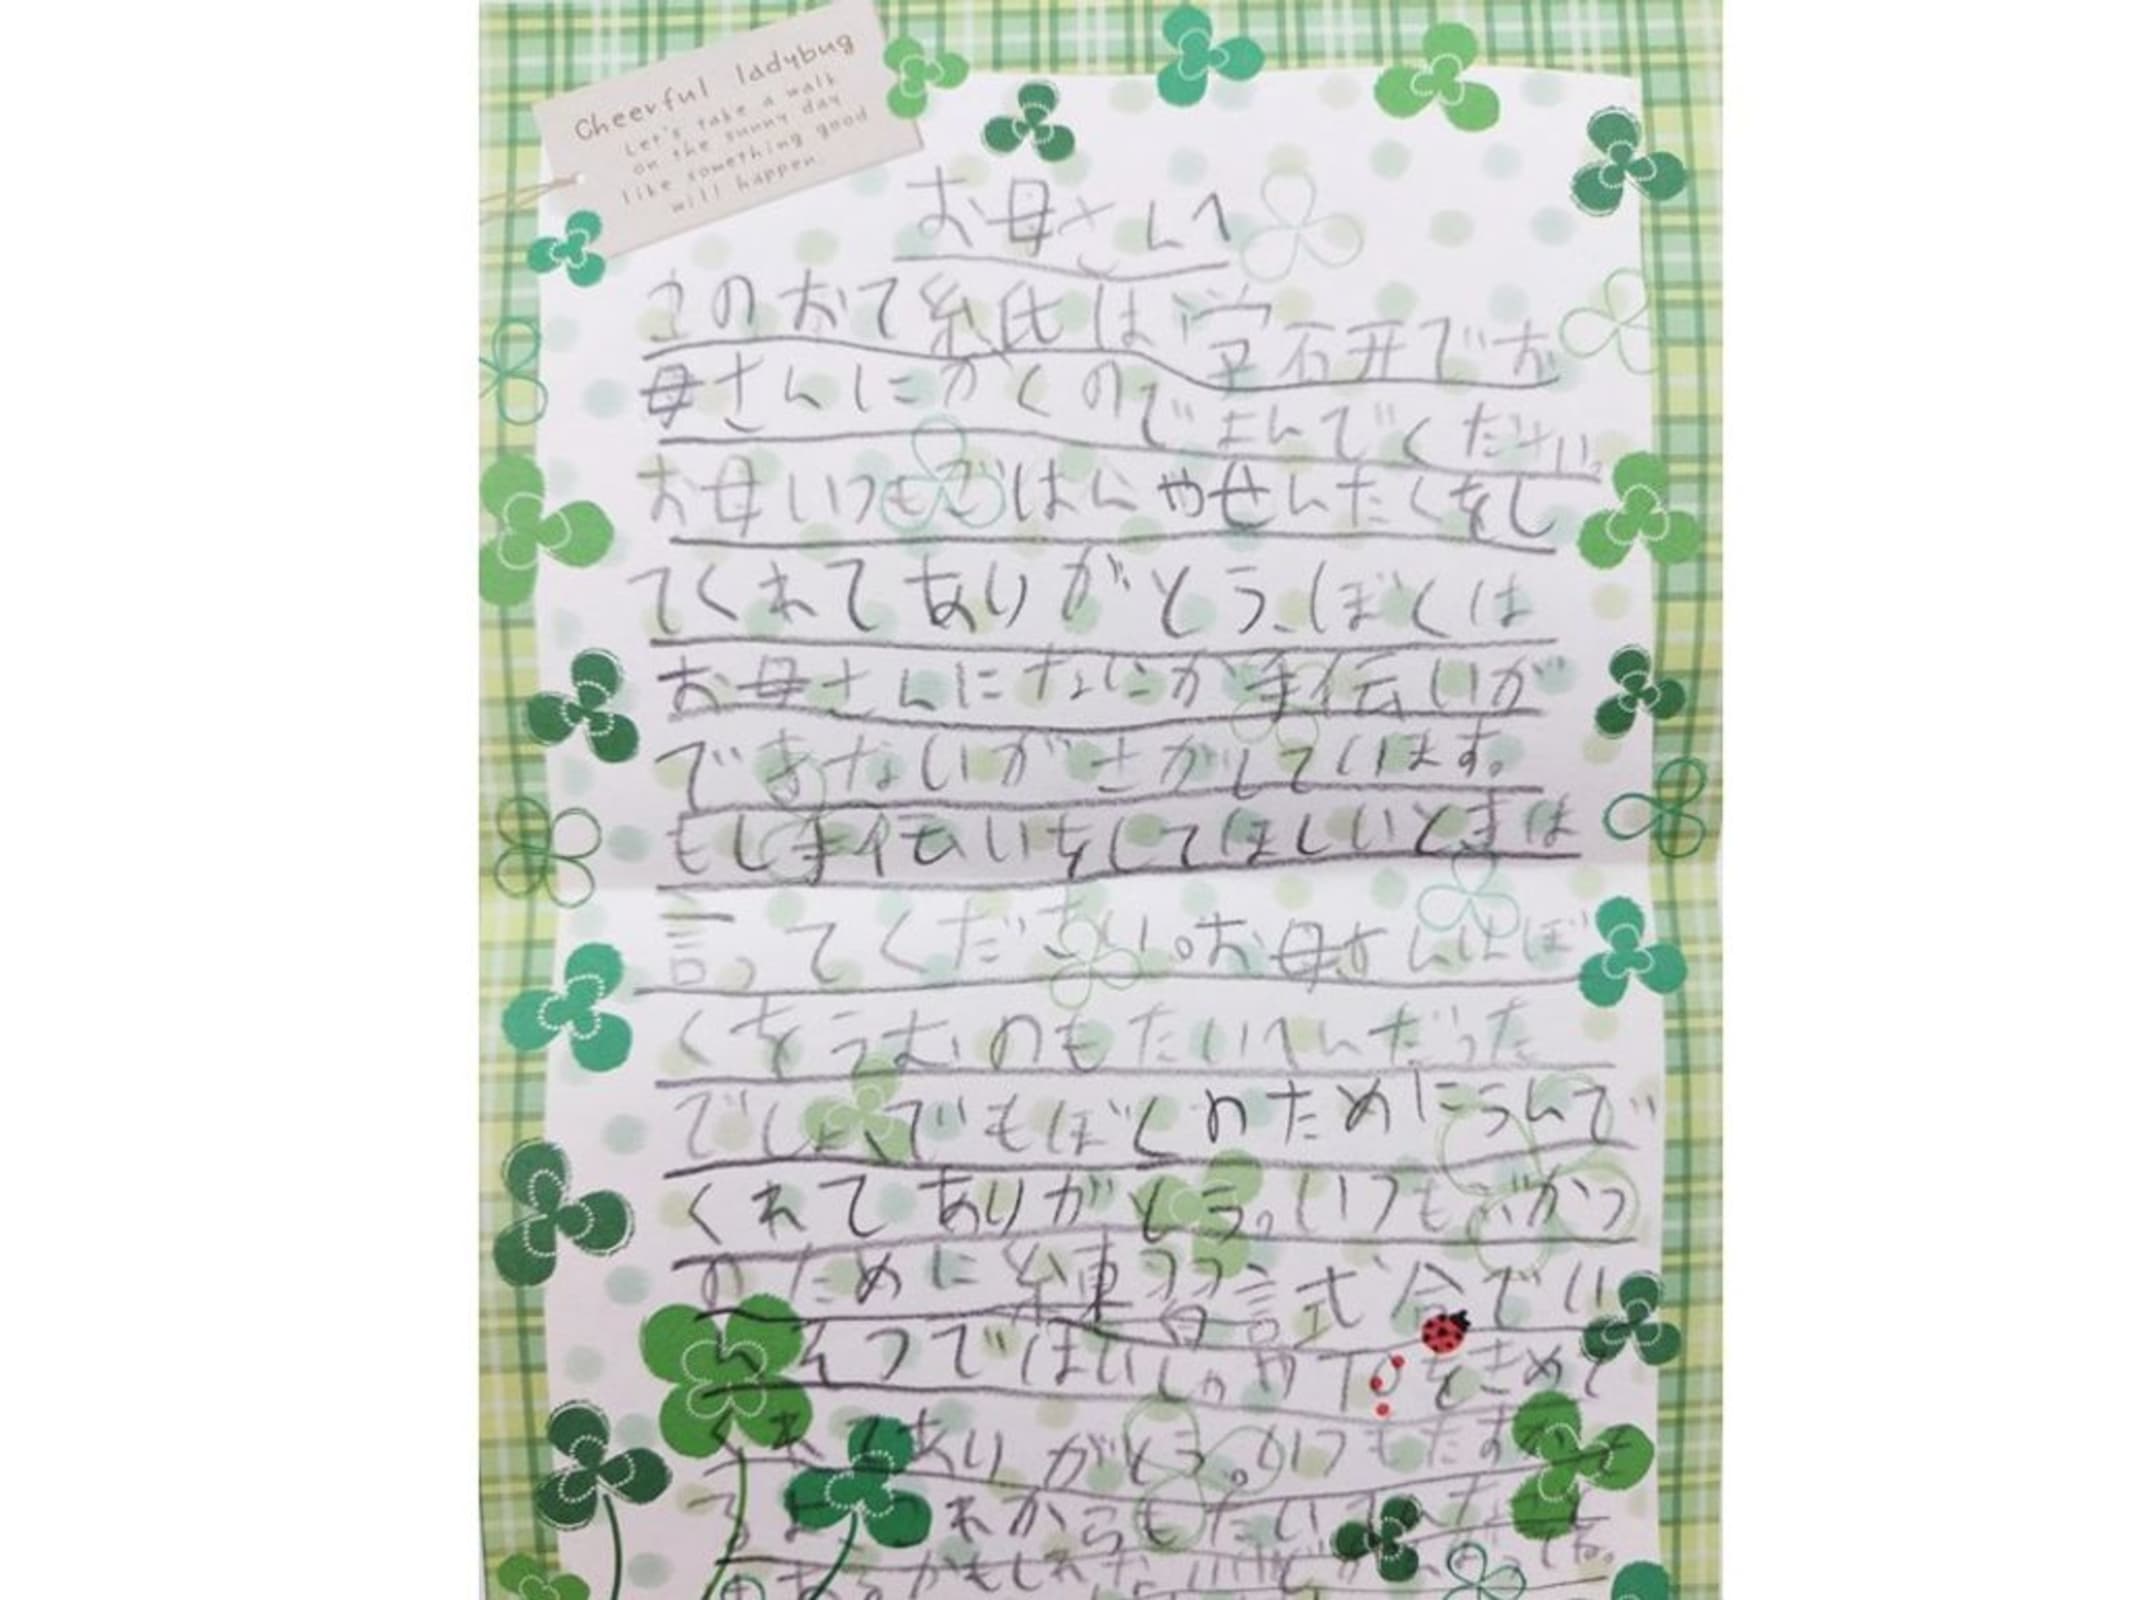 Cheerful ladybug
Let's take a walk
on the sunny day
like something good
will happen
お母さんへ
このおて紙は宝石井でお
母さんにかくのでよんでください。
お母いつもごはんやせんたくをし
てくれてありがとう、ぼくは
お母さんになにか手伝いが
できないかさがしています。
もし手伝いをしてほしいときは
言ってください。お母さんはぼ
くをうむのもたいへんだった
でしょ、でもぼくのためにうんで
くれてありがとう。いつも
のために練習試合でい
そつでほいしゃや をきめて
くれてありがとう。いつもたすかって
るよ これからもたいへんなこと
もあるかもしれない がんばってね。